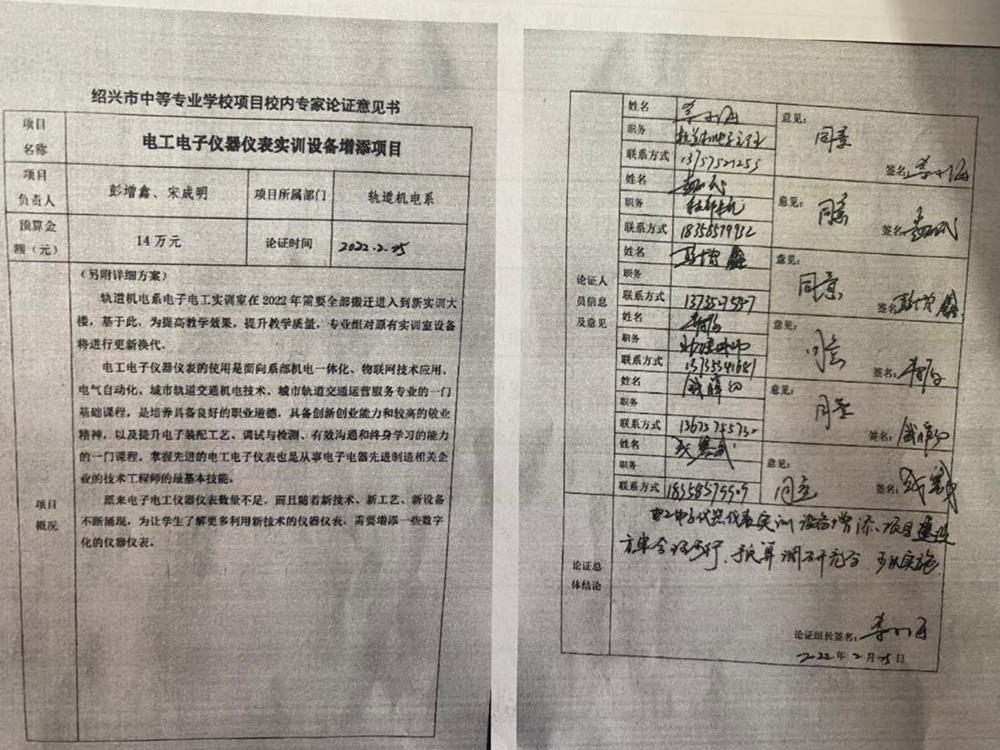 绍兴市中等专业学校项目校内专家论证意见书
项目名称
电工电子仪器仪表实训设备增添项目
项目负责人
彭增鑫、宋成明
项目所属部门
轨道机电系
预算金额（元）
14万元
论证时间
2022.2.25
项目概况
（另附详细方案）
轨道机电系电子电工实训室在2022年需要全部搬迁进入到新实训大
楼，基于此，为提高教学效果，提升教学质量，专业组对原有实训室设备
将进行更新换代。
电工电子仪器仪表的使用是面向系部机电一体化、物联网技术应用、
电气自动化，城市轨道交通机电技术、城市轨道交通运营服务专业的一门
基础课程，是培养具备良好的职业道德，具备创新创业能力和较高的敬业
精神，以及提升电子装配工艺、调试与检测、有效沟通和终身学习的能力
的一门课程。掌握先进的电工电子仪表也是从事电子电器先进制造相关企
业的技术工程师的最基本技能。
原来电子电工仪器仪表数量不足，而且随着新技术、新工艺、新设备
不断涌现，为让学生了解更多利用新技术的仪器仪表，需要增添一些数字
化的仪器仪表。
论证人员信息及意见
姓名
职务
联系方式 13757521255
意见：
同意
签名：
姓名
职务
联系方式
意见：
同意
签名：
姓名 彭增鑫
职务
联系方式
意见：
同意
签名：彭增鑫
姓名
职务
联系方式
意见：
同意
签名：
姓名
职务
联系方式
意见：
同意
签名：
姓名
职务
联系方式
意见：
同意
签名：
论证总体结论
电工电子仪器仪表实训设备增添项目建设
方案合理可行，预算调研充分，予以实施
论证组长签名：
2022年2月25日